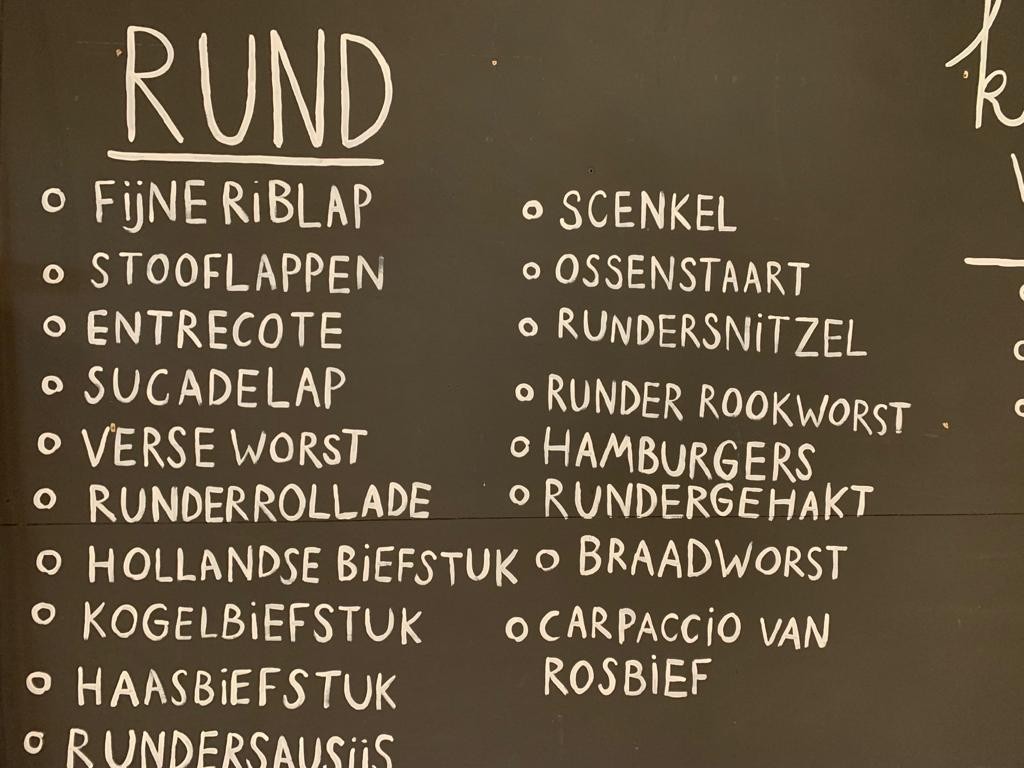 RUND
FijNE RiBLAP
STOOFLAPPEN
ENTRECOTE
SUCADELAP
VERSE WORST
RUNDERROLLADE
HOLLANDSE BiEFSTUK
KOGELBiEFSTUK
HAASBiEFSTUK
RUNDERSAUSijS
SCENKEL
OSSENSTAART
RUNDERSNiTZEL
RUNDER ROOKWORST
HAMBURGERS
RUNDERGEHAKT
BRAADWORST
CARPACCiO VAN
ROSBiEF